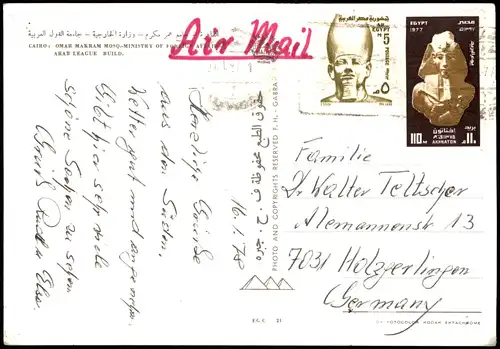 القاهرة : جامع عمر مكرم — وزارة الخارجية — جامعة الدول العربية
CAIRO: OMAR MAKRAM MOSQ-MINISTRY OF FOREIGN AFFAIRS
ARAB LEAGUE BUILD.
Air Mail
جمهورية مصر العربية
EGYPT
5
M
م ٥
EGYPT
1977
AKHNATON
اخناتون
110 M
م ١١٠
16.1.78
Herzliche Grüße
aus dem Süden.
Wetter gut und angenehm.
Gibt hier sehr viele
schöne Sachen zu sehen
Gruß Rudi u Else
حقوق الطبع محفوظة ف . ح .
PHOTO AND COPYRIGHTS RESERVED F. H. - GABRA
Familie
Dr. Walter Teltscher
Alemannenstr 13
7031 Holzgerlingen
Germany
EG.C 21
FOTOCOLOR KODAK EKTACHROME